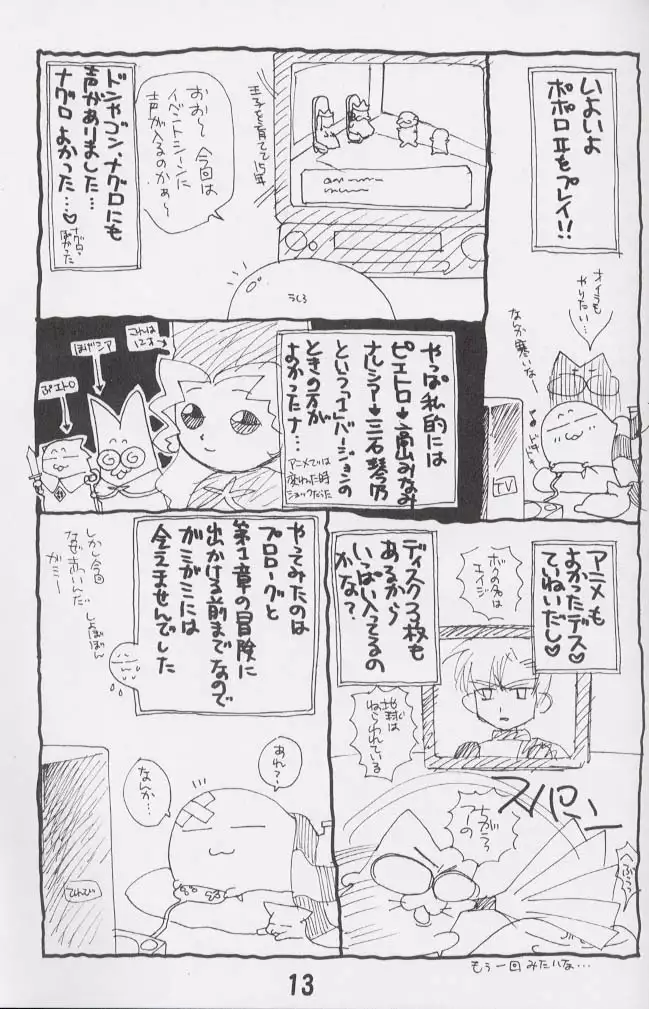 いよいよ
ポポロⅡをプレイ!!
オイラも
やりたい…
なんか寒いなー
TV
王子を育てて15年
おお〜今回は
イベントシーンに
声が入るのかぁ〜
うしろ
ドンやゴン、ナグロにも
声がありました…
ナグロよかった…♡
ナグロ
よかった
やっぱ私的には
ピエトロ→高山みなみ
ナルシア→三石琴乃
というフィルバージョンの
ときの方が
よかったナ…
アニメでは
変わった時
ショックだった
これは
12才
ほげシア
ぷエトロ
アニメも
よかったデス♡
ていねいだし♡
ボクの名は
エイジ
地球は
ねらわれている
ディスク3枚も
あるから
いっぱい入ってるの
かな?
スパパン
ちがう
へぶうっ
もう一回みたいな…
やってみたのは
プロローグと
第1章の冒険に
出かける前までなので
ガミガミには
会えませんでした
しかし今回
なぜ赤いんだ
ガミー
しょぼぼん
あれ?
なんか…
てれび
13